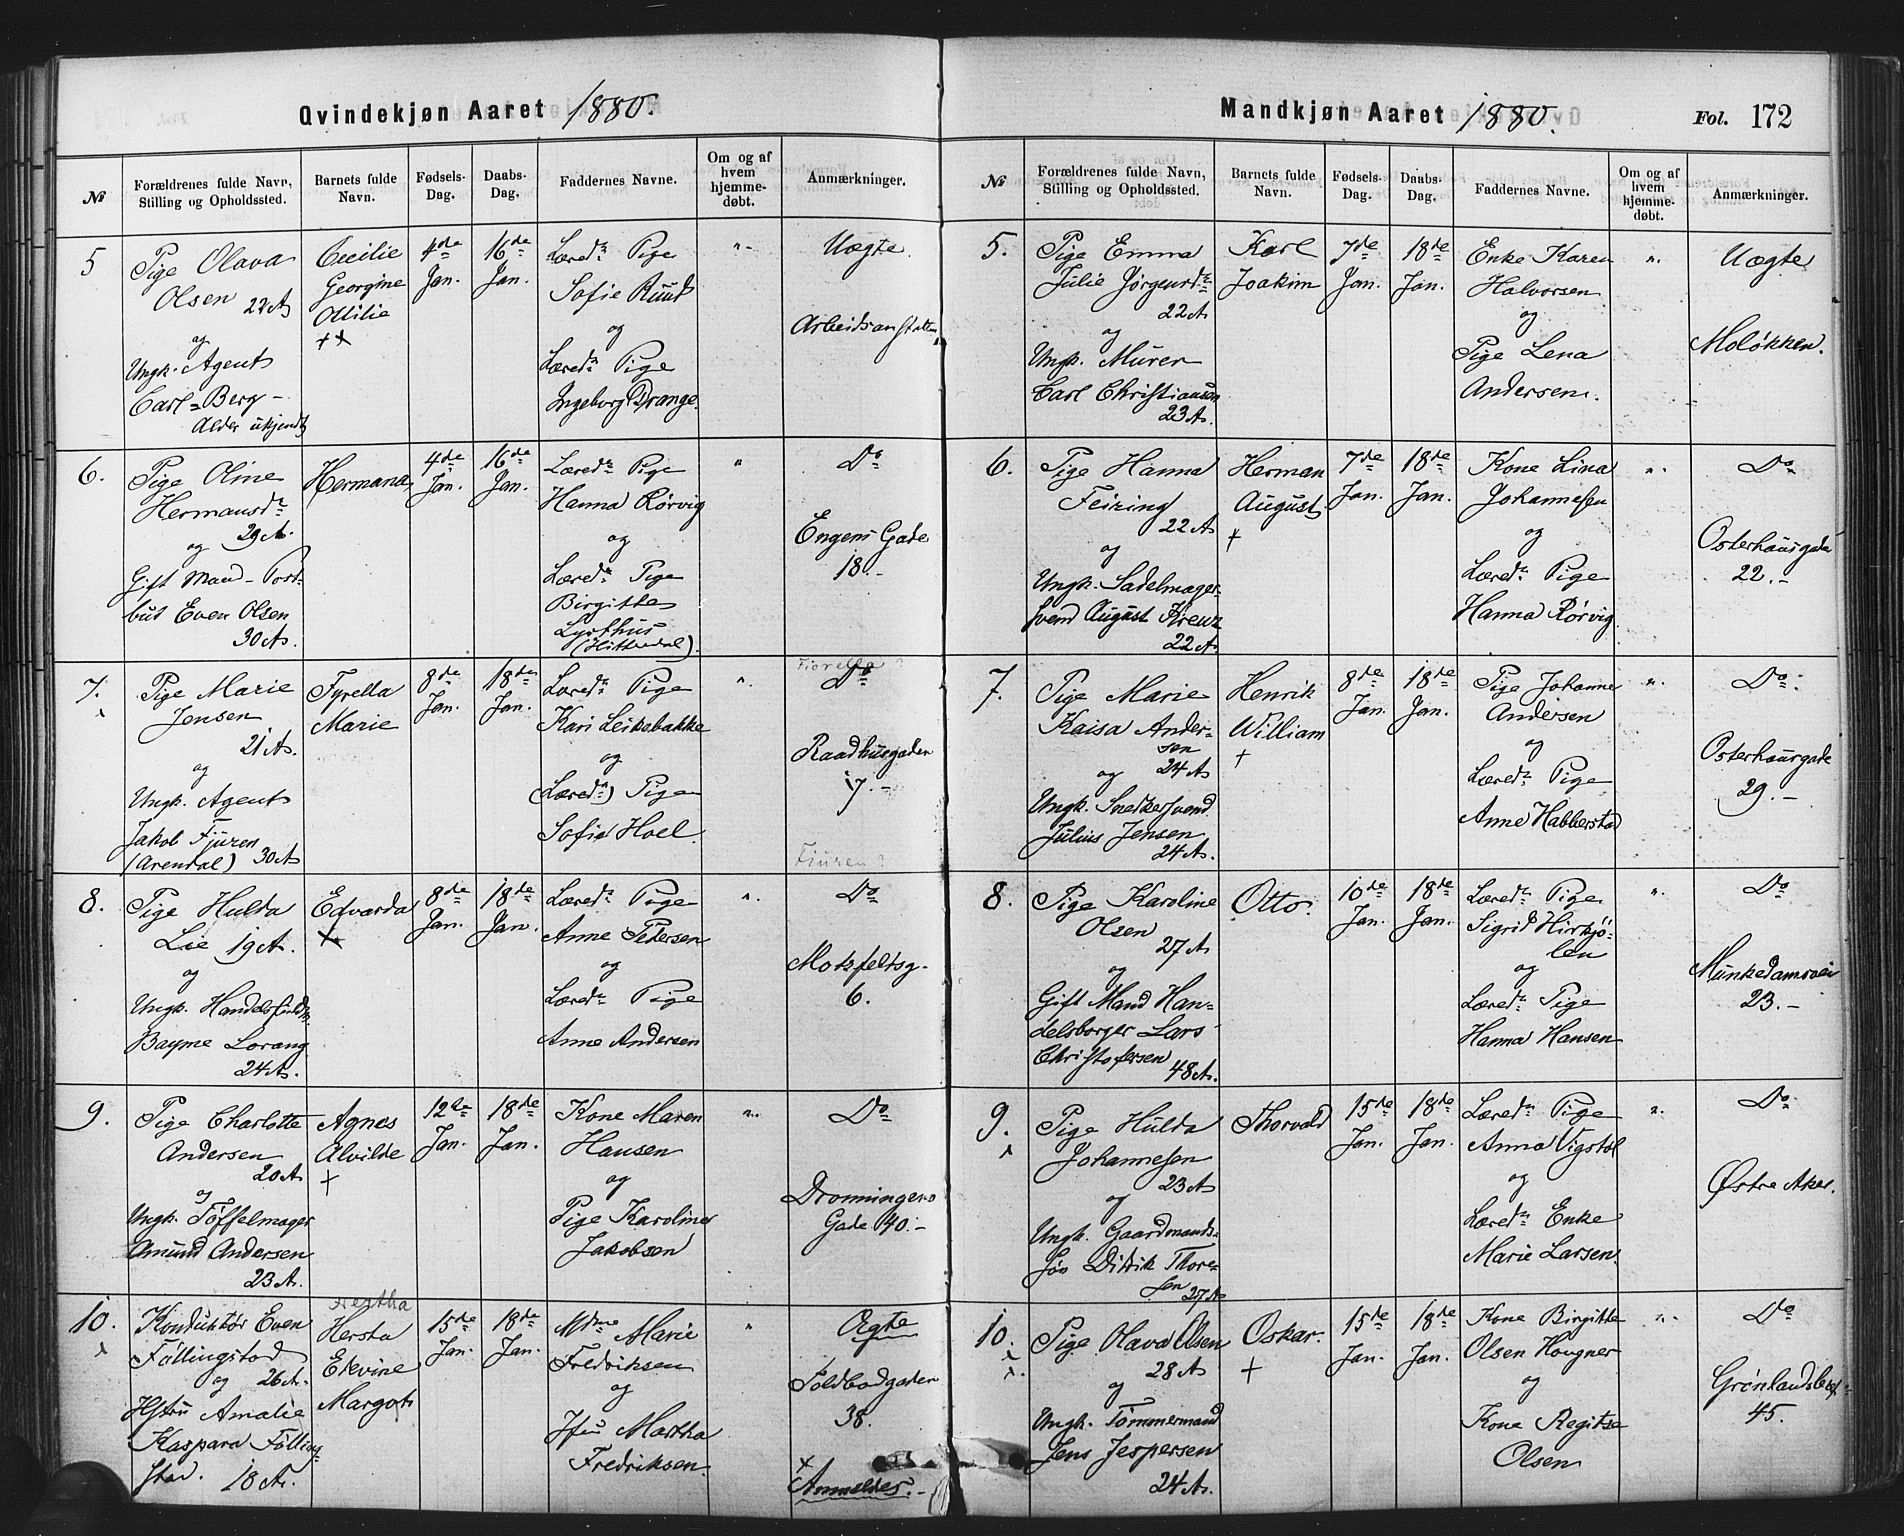 Qvindekjøn Aaret 1880.
№
Forældrenes fulde Navn, Stilling og Opholdssted.
Barnets fulde Navn.
Fødsels-Dag.
Daabs-Dag.
Faddernes Navne.
Om og af hvem hjemmedøbt.
Anmærkninger.
5
Pige Olava
Olsen 22 A
og
Ungk. Agent
Carl Berg -
Alder ukjendt
Cecilie
Georgine
Otilie
++
4de
Jan.
16de
Jan.
Læred. Pige
Sofie Ruud
og
Læred. Pige
Ingeborg Drange.
"
Uægte
Arbeidsanstalten
6.
Pige Oline
Hermansd.
29 A.
og
Gift Mand - Post-
bud Even Olsen
30 A.
Hermana
4de
Jan.
16de
Jan.
Læred. Pige
Hanna Rørvig
og
Læred. Pige
Birgitte
Lysthus
(Hitterdal).
"
Do
Engens Gade
18.-
7.
Pige Marie
Jensen
21 A.
og
Ungk. Agent
Jakob Fjuren
(Arendal) 30 A
Fyrella
Marie
8de
Jan.
18de
Jan.
Læred. Pige
Kari Leikebakke
og
(Læred.) Pige
Sofie Hoel
"
Fiorella?
Do
Raadhusgaden
17.-
Fiuren?
8.
Pige Hulda
Lie 19 A.
og
Ungk. Handelsfuldm.
Bayme Lorang
24 A.
Edvarda
+
8de
Jan.
18de
Jan.
Læred. Pige
Anne Pedersen
og
Læred. Pige
Anne Andersen
"
Do
Motzfeltsg.
6.
9.
Pige Charlotte
Andersen
20 A
og
Ungk. Tøffelmager
Amund Andersen
23 A.
Agnes
Alvilde
+
12te
Jan.
18de
Jan.
Kone Maren
Hansen
og
Pige Karoline
Jakobsen
"
Do
Dronningens
Gade 40.-
10.
Konduktør Even
Føllingstad
og 26 A.
Hstru Amalie
Kaspara Følling
stad. 18 A.
Hertha
Hersta
Ekvine
Margot
15de
Jan.
18de
Jan.
Mdme Marie
Fredriksen
og
Jfru Martha
Fredriksen.
"
Ægte
Toldbodgaden
38.
+
Anmeldes.-
Mandkjøn Aaret 1880.
Fol. 172
№
Forældrenes fulde Navn, Stilling og Opholdssted.
Barnets fulde Navn.
Fødsels-Dag.
Daabs-Dag.
Faddernes Navne.
Om og af hvem hjemmedøbt.
Anmærkninger.
5.
Pige Emma
Julie Jørgensd.
22 A
og
Ungk. Murer
Carl Christiansen
23 A.
Karl
Joakim
7de
Jan.
18de
Jan.
Enke Karen
Halvorsen
og
Pige Lena
Andersen.
"
Uægte
Moløkken.
6.
Pige Hanna
Feiring
22 A
og
Ungk. Sadelmager-
svend August Kreuz
22 A.
Herman
August
+
7de
Jan.
18de
Jan.
Kone Lina
Johannesen
og
Læred. Pige
Hanna Rørvig
"
Do
Osterhausgade
22.-
7.
Pige Marie
Kaisa Ander-
sen
og 24 A
Ungk. Snedkersvend
Julius Jensen
24 A.
Henrik
William
+
8de
Jan.
18de
Jan.
Pige Johanne
Andersen
og
Læred. Pige
Anne Habberstad
"
Do.
Osterhausgade
29.-
8.
Pige Karoline
Olsen
27 A
og
Gift Mand Han-
delsborger Lars
Christofersen
48 A.
Otto.
10de
Jan.
18de
Jan.
Læred. Pige
Sigrid Hirkjø-
len
og
Læred. Pige
Hanna Hansen
"
Do
Munkedamsvei
23.-
9.
Pige Hulda
Johannesen
23 A
og
Ungk. Gaardmands-
søn Didrik Thore-
sen 27 A
Thorvald
15de
Jan.
18de
Jan.
Læred. Pige
Anna Vigstøl
og
Læred. Enke
Marie Larsen.
"
Do
Østre Aker.
10.
Pige Olava Olsen
28 A
og
Ungk. Tømmermand
Jens Jespersen
24 A.
Oskar.
+
15de
Jan.
18de
Jan.
Kone Birgitte
Olsen Hougner
og
Kone Regitse
Olsen
"
Do
45.